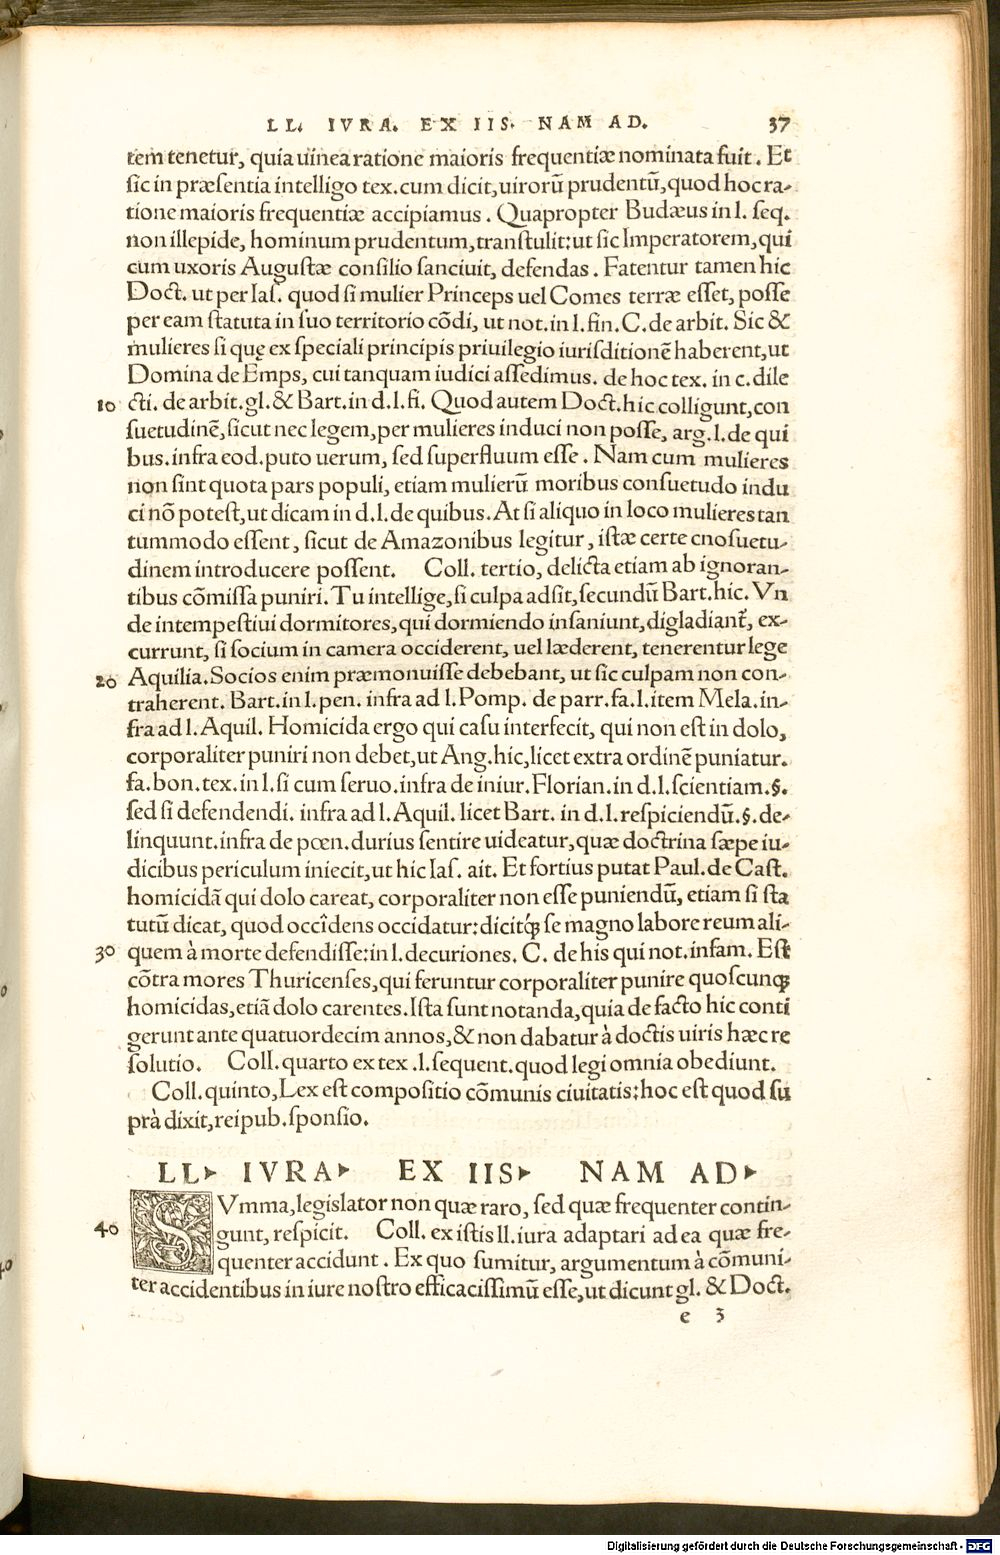 LL. IVRA. EX IIS. NAM AD. 37
tem tenetur, quia uinea ratione maioris frequentiæ nominata fuit. Et
sic in præsentia intelligo tex. cum dicit, uirorū prudentū, quod hoc ra-
tione maioris frequentiæ accipiamus. Quapropter Budæus in l. seq.
non illepide, hominum prudentum, transtulit: ut sic Imperatorem, qui
cum uxoris Augustæ consilio sanciuit, defendas. Fatentur tamen hic
Doct. ut per Ias. quod si mulier Princeps uel Comes terræ esset, posse
per eam statuta in suo territorio cōdi, ut not. in l. fin. C. de arbit. Sic &
mulieres si quę ex speciali principis priuilegio iurisditionē haberent, ut
Domina de Emps, cui tanquam iudici assedimus. de hoc tex. in c. dile
10 cti. de arbit. gl. & Bart. in d. l. fi. Quod autem Doct. hic colligunt, con
suetudinē, sicut nec legem, per mulieres induci non posse, arg. l. de qui
bus. infra eod. puto uerum, sed superfluum esse. Nam cum mulieres
non sint quota pars populi, etiam mulierū moribus consuetudo indu
ci nō potest, ut dicam in d. l. de quibus. At si aliquo in loco mulieres tan
tummodo essent, sicut de Amazonibus legitur, istæ certe cnosuetu-
dinem introducere possent. Coll. tertio, delicta etiam ab ignoran-
tibus cōmissa puniri. Tu intellige, si culpa adsit, secundū Bart. hic. Vn
de intempestiui dormitores, qui dormiendo insaniunt, digladiant᷑, ex-
currunt, si socium in camera occiderent, uel læderent, tenerentur lege
20 Aquilia. Socios enim præmonuisse debebant, ut sic culpam non con-
traherent. Bart. in l. pen. infra ad l. Pomp. de parr. fa. l. item Mela. in-
fra ad l. Aquil. Homicida ergo qui casu interfecit, qui non est in dolo,
corporaliter puniri non debet, ut Ang. hic, licet extra ordinē puniatur.
fa. bon. tex. in l. si cum seruo. infra de iniur. Florian. in d. l. scientiam. §.
sed si defendendi. infra ad l. Aquil. licet Bart. in d. l. respiciendū. §. de-
linquunt. infra de pœn. durius sentire uideatur, quæ doctrina sæpe iu-
dicibus periculum iniecit, ut hic Ias. ait. Et fortius putat Paul. de Cast.
homicidā qui dolo careat, corporaliter non esse puniendū, etiam si sta
tutū dicat, quod occîdens occidatur: dicitq́ꝫ se magno labore reum ali-
30 quem à morte defendisse: in l. decuriones. C. de his qui not. infam. Est
cōtra mores Thuricenses, qui feruntur corporaliter punire quoscunqꝫ
homicidas, etiā dolo carentes. Ista sunt notanda, quia de facto hic conti
gerunt ante quatuordecim annos, & non dabatur à doctis uiris hæc re
solutio. Coll. quarto ex tex. l. sequent. quod legi omnia obediunt.
Coll. quinto, Lex est compositio cōmunis ciuitatis: hoc est quod su
prà dixit, reipub. sponsio.
LL. IVRA. EX IIS. NAM AD.
SVmma, legislator non quæ raro, sed quæ frequenter contin-
40 gunt, respicit. Coll. ex istis ll. iura adaptari ad ea quæ fre-
quenter accidunt. Ex quo sumitur, argumentum à cōmuni-
ter accidentibus in iure nostro efficacissimū esse, ut dicunt gl. & Doct.
e 3
Digitalisierung gefördert durch die Deutsche Forschungsgemeinschaft - DFG